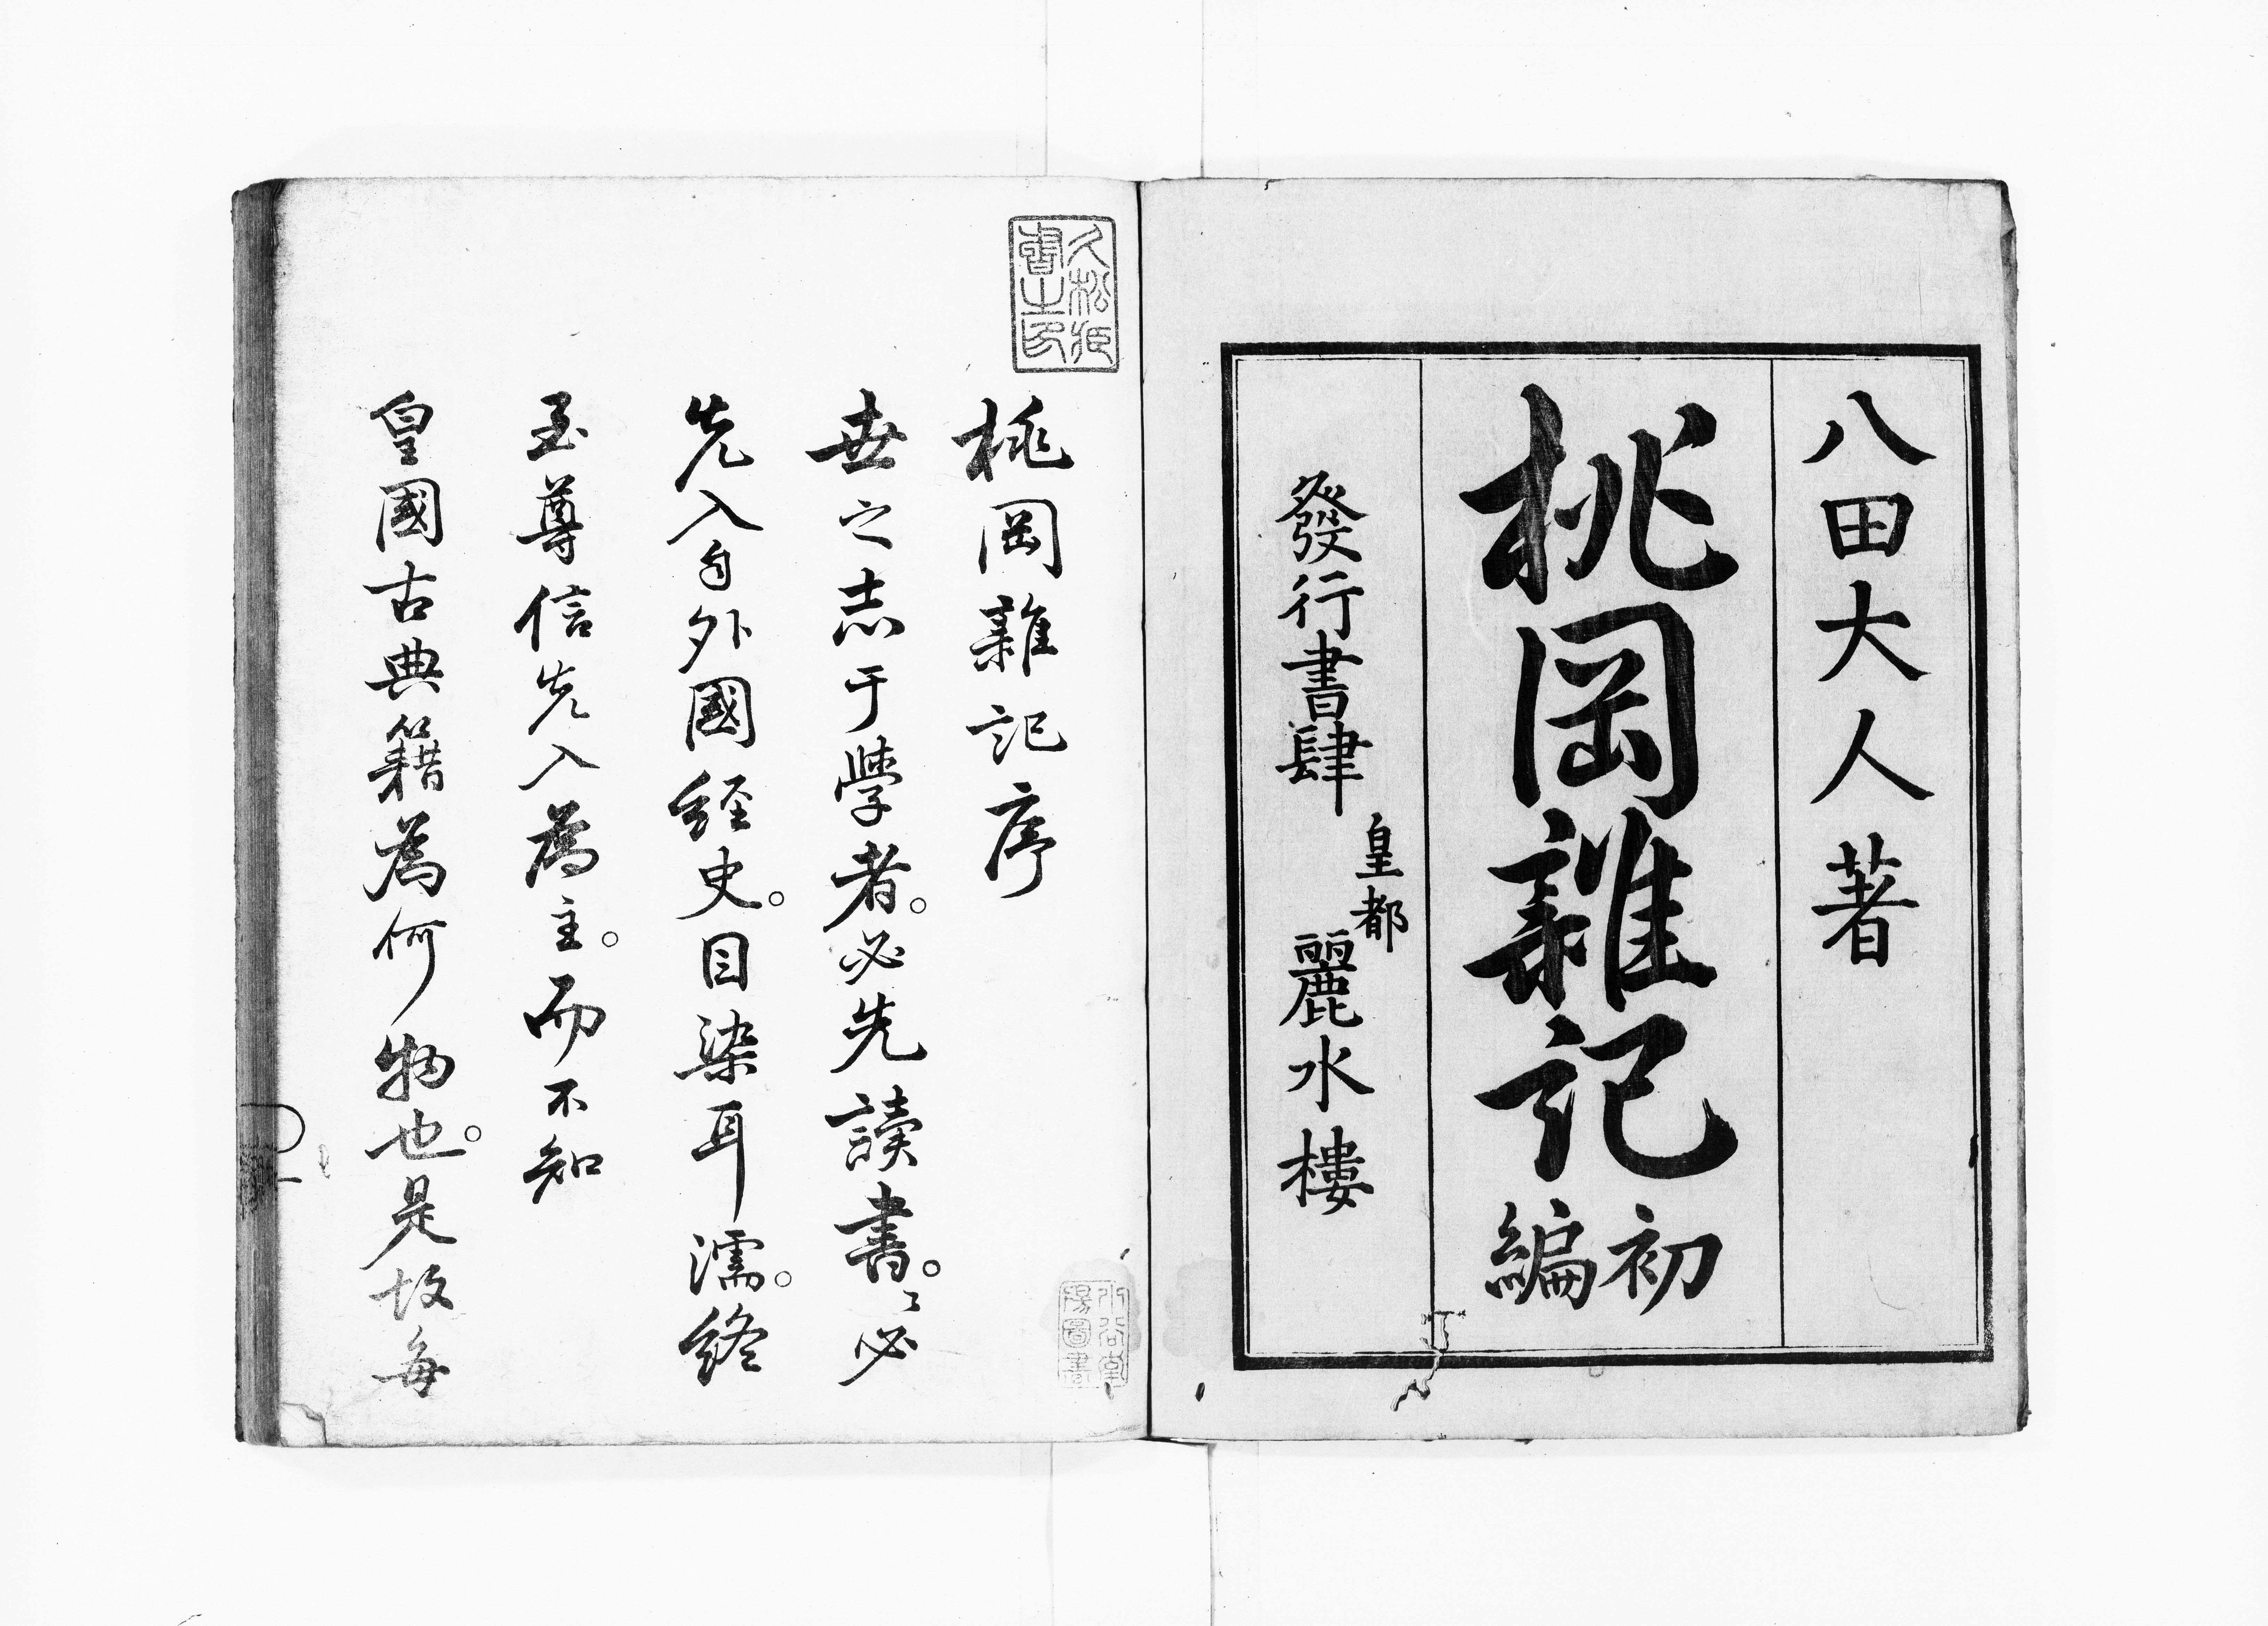 八田大人著
桃岡雜記初編
發行書肆
皇都
麗水樓
桃岡雜記序
世之志于學者。必先讀書。〻必
先入自外國経史。目染耳濡。終
至尊信先入為主。而不知
皇國古典籍為何物也。是故每